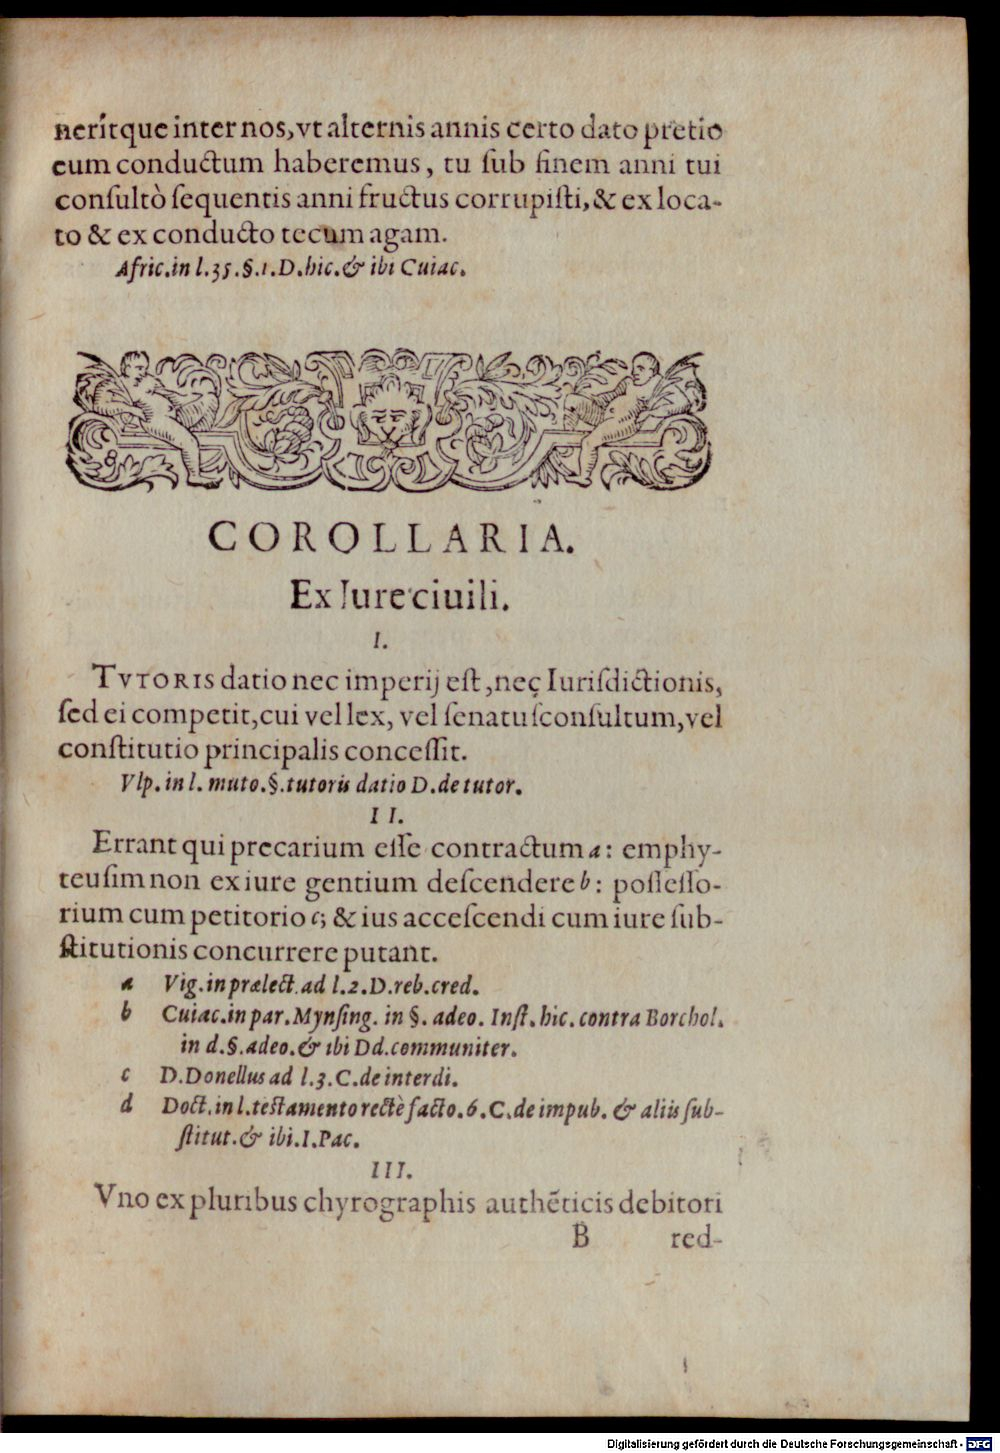 neritque inter nos, vt alternis annis certo dato pretio
eum conductum haberemus, tu ſub finem anni tui
conſultò ſequentis anni fructus corrupiſti, & ex loca-
to & ex conducto tecum agam.
Afric. in l. 35. §. 1. D. hic. & ibi Cuiac.
COROLLARIA.
Ex Iure ciuili.
I.
TVTORIS datio nec imperij eſt, nec Iuriſdictionis,
ſed ei competit, cui vel lex, vel ſenatuſconſultum, vel
conſtitutio principalis conceſſit.
Vlp. in l. muto. §. tutoris datio D. de tutor.
II.
Errant qui precarium eſſe contractum a: emphy-
teuſim non ex iure gentium deſcendere b: poſſeſſo-
rium cum petitorio c; & ius accreſcendi cum iure ſub-
ſtitutionis concurrere putant.
a Vig. in prælect. ad l. 2. D. reb. cred.
b Cuiac. in par. Mynſing. in §. adeo. Inſt. hic. contra Borchol.
in d. §. adeo. & ibi Dd. communiter.
c D. Donellus ad l. 3. C. de interdi.
d Doct. in l. teſtamento rectè facto. 6. C. de impub. & aliis ſub-
ſtitut. & ibi. I. Pac.
III.
Vno ex pluribus chyrographis authẽticis debitori
B red-
Digitalisierung gefördert durch die Deutsche Forschungsgemeinschaft - DFG